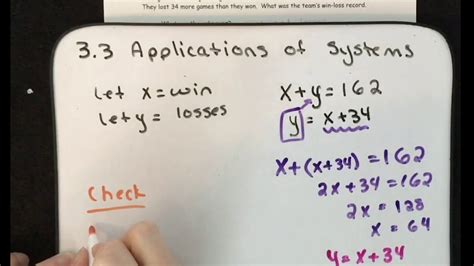 They lost 34 more games than they won. What was the team's win-loss record.
3.3 Applications of Systems
Let x = win
let y = losses
x+y=162
y = x+34
x+(x+34) = 162
2x + 34 = 162
2x = 128
x = 64
y = x+34
Check